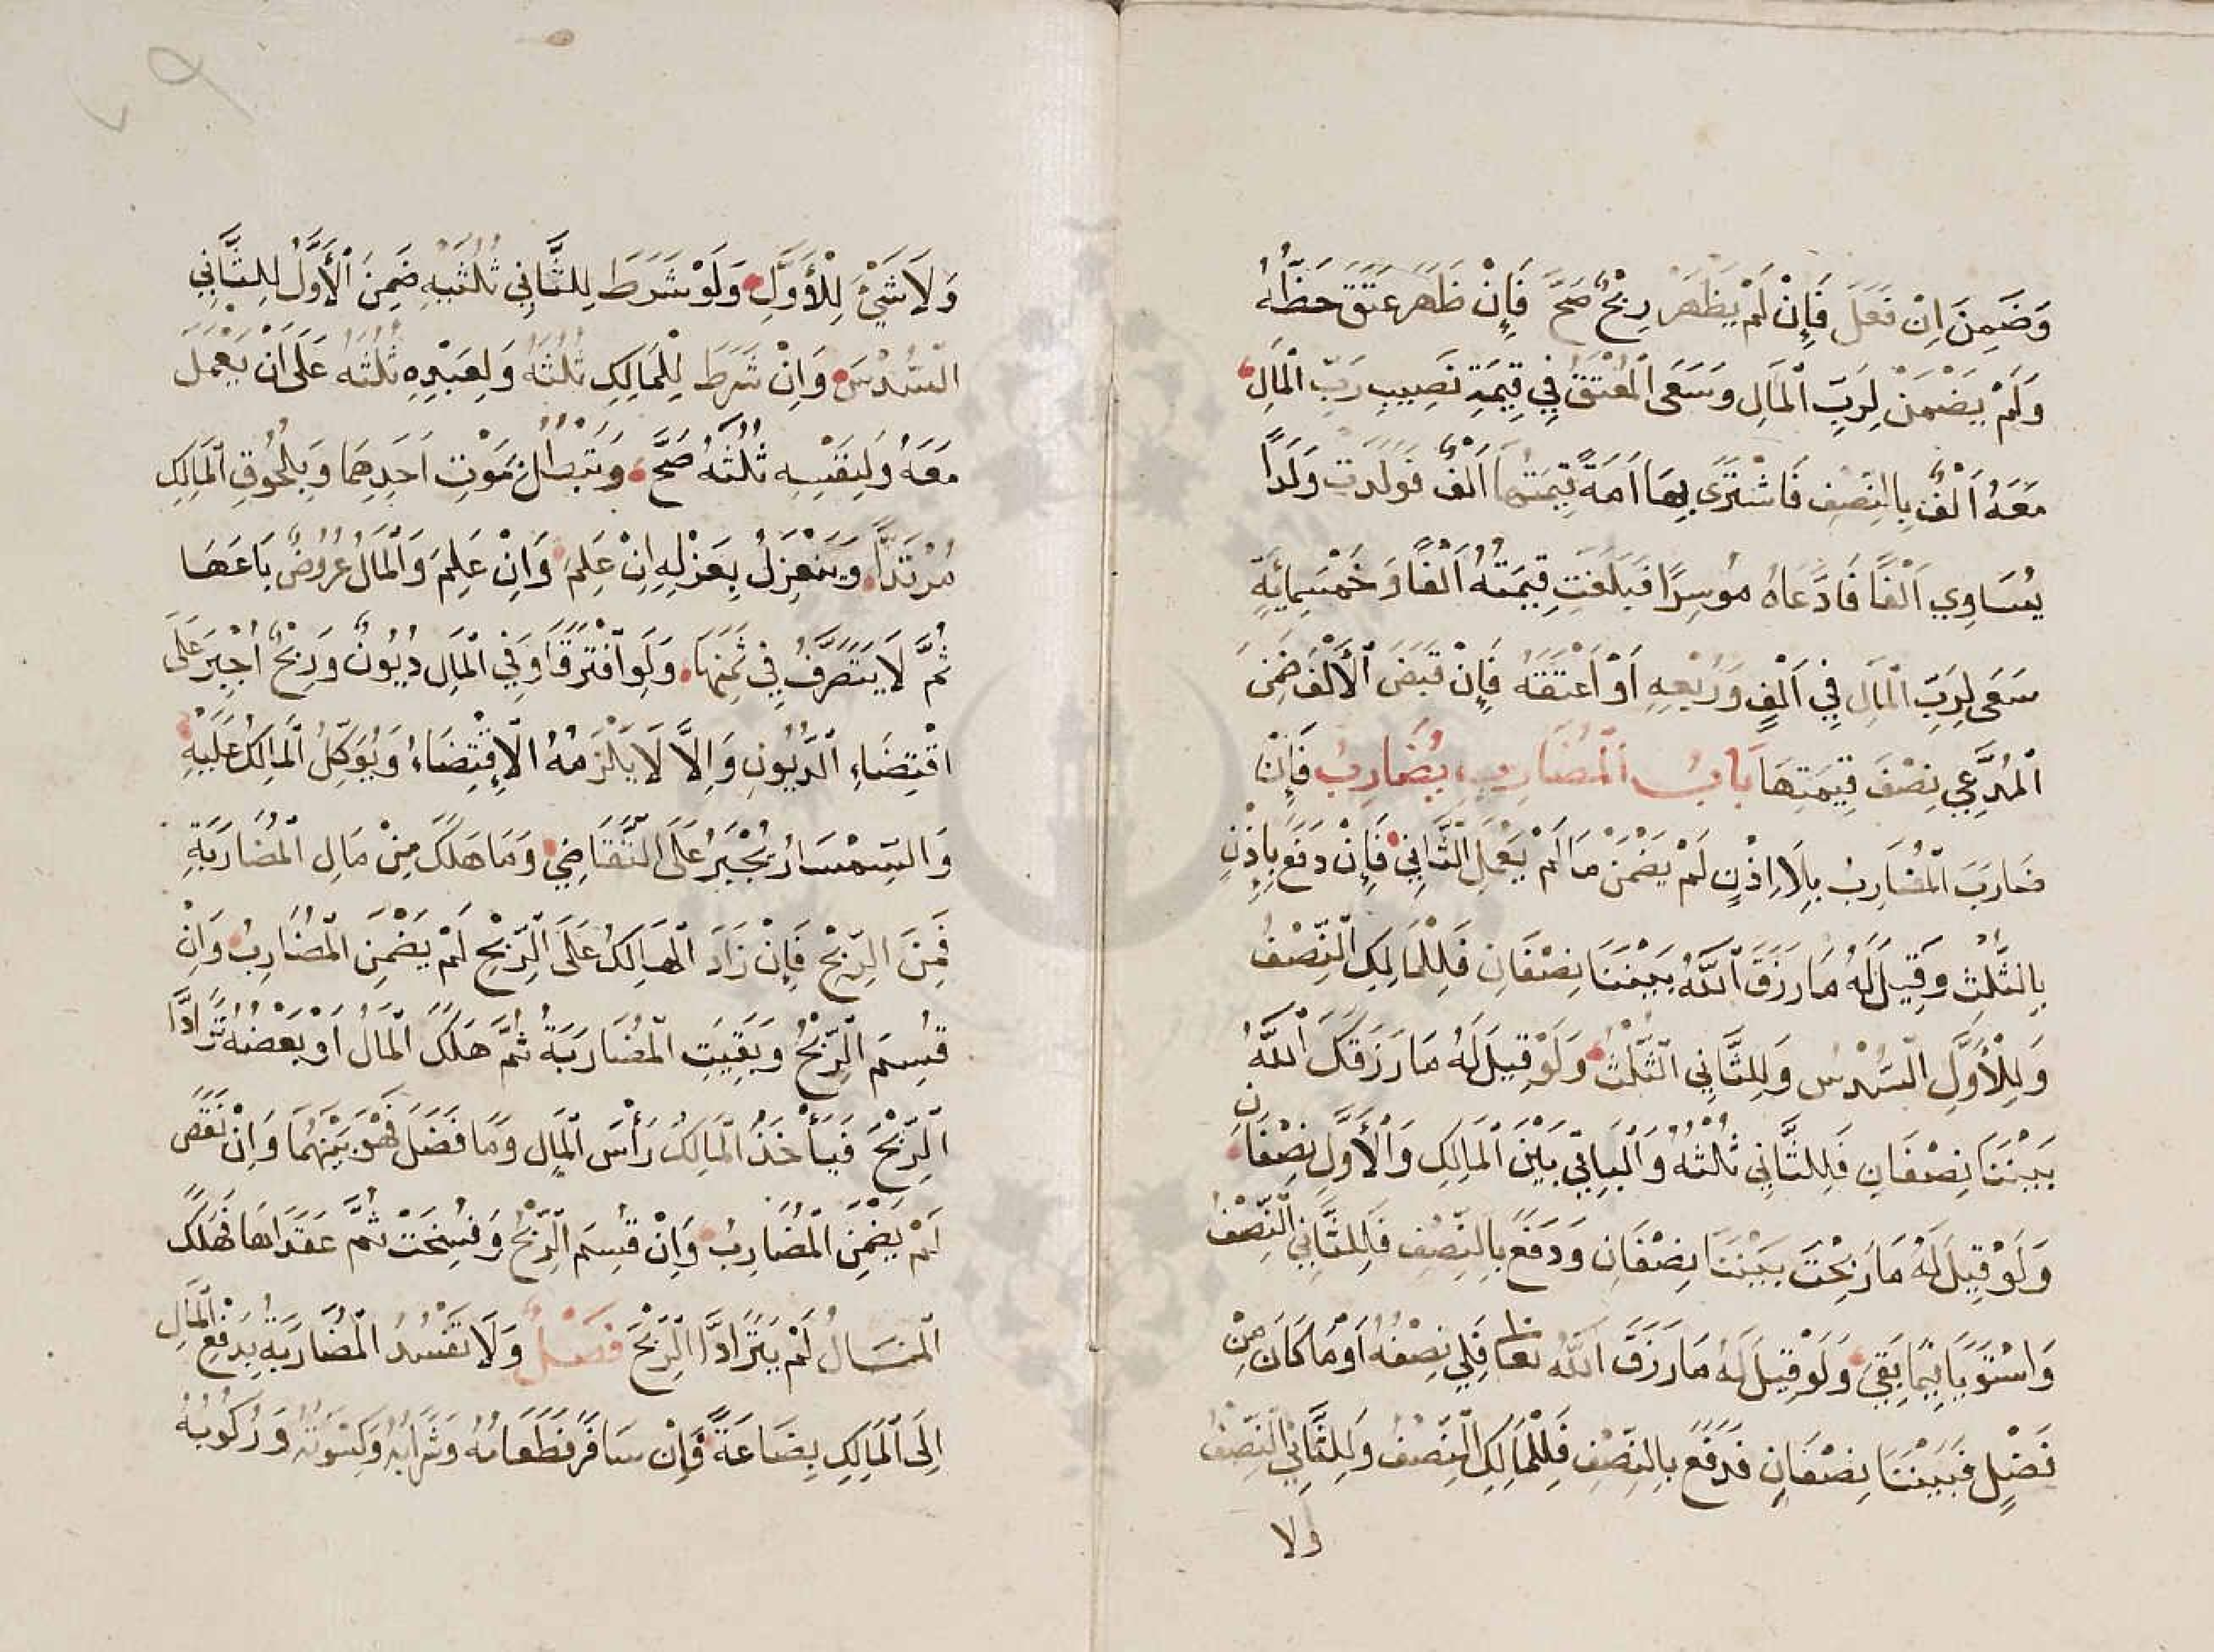 وَضَمِنَ اِنْ فَعَلَ فَإِنْ لَمْ يَظْهَرْ رِبْحٌ صَحَّ فَإِنْ ظَهَرَ عَتَقَ حَظُّهُ
وَلَمْ يَضْمَنْ لِرَبِّ الْمَالِ وَسَعَى الْمُعْتَقُ فِي قِيمَةِ نَصِيبِ رَبِّ الْمَالِ
مَعَهُ اَلْفٌ بِالنِّصْفِ فَاشْتَرَى بِهَا اَمَةً قِيمَتُهَا اَلْفٌ فَوَلَدَتْ وَلَدًا
يُسَاوِي اَلْفًا فَادَّعَاهُ مُوسِرًا فَبَلَغَتْ قِيمَتُهُ اَلْفًا وَخَمْسَمِائَةٍ
سَعَى لِرَبِّ الْمَالِ فِي اَلْفٍ وَرُبْعِهِ اَوْ اَعْتَقَهُ فَإِنْ قَبَضَ الْأَلْفَ ضَمِنَ
الْمُدَّعِي نِصْفَ قِيمَتِهَا بَابُ الْمُضَارِبِ يُضَارِبُ فَإِنْ
ضَارَبَ الْمُضَارِبُ بِلَا اِذْنٍ لَمْ يَضْمَنْ مَا لَمْ يَعْمَلِ الثَّانِي فَإِنْ دَفَعَ بِإِذْنٍ
بِالثُّلُثِ وَقِيلَ لَهُ مَا رَزَقَ اللَّهُ بَيْنَنَا نِصْفَانِ فَلِلْمَالِكِ النِّصْفُ
وَلِلْأَوَّلِ السُّدْسُ وَلِلثَّانِي الثُّلْثُ وَلَوْ قِيلَ لَهُ مَا رَزَقَكَ اللَّهُ
بَيْنَنَا نِصْفَانِ فَلِلثَّانِي ثُلُثُهُ وَالْبَاقِي بَيْنَ الْمَالِكِ وَالْأَوَّلِ نِصْفَانِ
وَلَوْ قِيلَ لَهُ مَا رَبِحْتَ بَيْنَنَا نِصْفَانِ وَدَفَعَ بِالنِّصْفِ فَلِلثَّانِي النِّصْفُ
وَاسْتَوَيَا فِيمَا بَقِيَ وَلَوْ قِيلَ لَهُ مَا رَزَقَ اللَّهُ تعا فَلِي نِصْفُهُ اَوْ مَا كَانَ مِنْ
فَضْلٍ فَبَيْنَنَا نِصْفَانِ فَدَفَعَ بِالنِّصْفِ فَلِلْمَالِكِ النِّصْفُ وَلِلثَّانِي النِّصْفُ
ولا
وَلَا شَيْءَ لِلْأَوَّلِ وَلَوْ شَرَطَ لِلثَّانِي ثُلُثَيْهِ ضَمِنَ الْأَوَّلُ لِلثَّانِي
السُّدْسَ وَاِنْ شَرَطَ لِلْمَالِكِ ثُلُثَهُ وَلِعَبْدِهِ ثُلُثَهُ عَلَى اَنْ يَعْمَلَ
مَعَهُ وَلِنَفْسِهِ ثُلُثَهُ صَحَّ وَتَبْطُلُ بِمَوْتِ اَحَدِهِمَا وَبِلُحُوقِ الْمَالِكِ
مُرْتَدًّا وَيَنْعَزِلُ بِعَزْلِهِ اِنْ عَلِمَ وَاِنْ عَلِمَ وَالْمَالُ عُرُوضٌ بَاعَهَا
ثُمَّ لَا يَتَصَرَّفُ فِي ثَمَنِهَا وَلَوِ افْتَرَقَا وَفِي الْمَالِ دُيُونٌ وَرِبْحٌ اُجْبِرَ عَلَى
اقْتِضَاءِ الدُّيُونِ وَاِلَّا لَا يَلْزَمُهُ الْاِقْتِضَاءُ وَيُوَكِّلُ الْمَالِكَ عَلَيْهِ
وَالسِّمْسَارُ يُجْبَرُ عَلَى التَّقَاضِي وَمَا هَلَكَ مِنْ مَالِ الْمُضَارَبَةِ
فَمِنَ الرِّبْحِ فَإِنْ زَادَ الْهَالِكُ عَلَى الرِّبْحِ لَمْ يَضْمَنِ الْمُضَارِبُ وَاِنْ
قُسِمَ الرِّبْحُ وَبَقِيَتِ الْمُضَارَبَةُ ثُمَّ هَلَكَ الْمَالُ اَوْ بَعْضُهُ تَرَادَّا
الرِّبْحَ فَيَأْخُذُ الْمَالِكُ رَأْسَ الْمَالِ وَمَا فَضَلَ فَهُوَ بَيْنَهُمَا وَاِنْ نَقَصَ
لَمْ يَضْمَنِ الْمُضَارِبُ وَاِنْ قُسِمَ الرِّبْحُ وَفُسِخَتْ ثُمَّ عَقَدَاهَا فَهَلَكَ
الْمَالُ لَمْ يَتَرَادَّا الرِّبْحَ فَصْلٌ وَلَا تَفْسُدُ الْمُضَارَبَةُ بِدَفْعِ الْمَالِ
اِلَى الْمَالِكِ بِضَاعَةً فَإِنْ سَافَرَ فَطَعَامُهُ وَشَرَابُهُ وَكِسْوَتُهُ وَرُكُوبُهُ